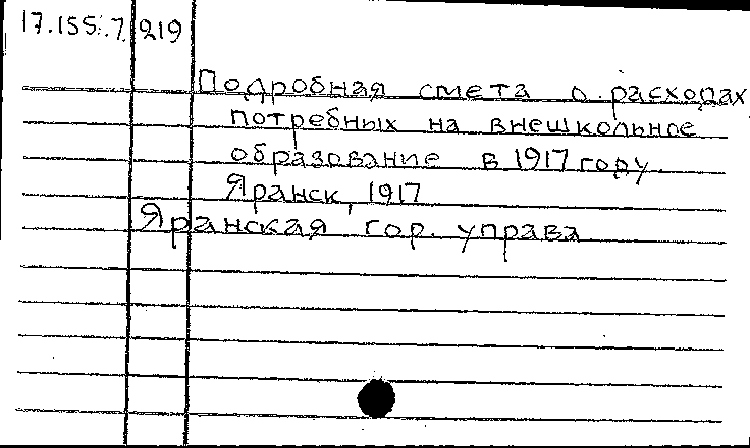 17.155.7 219
Подробная смета о расходах
потребных на внешкольное
образование в 1917 году.
Яранск, 1917
Яранская гор. управа